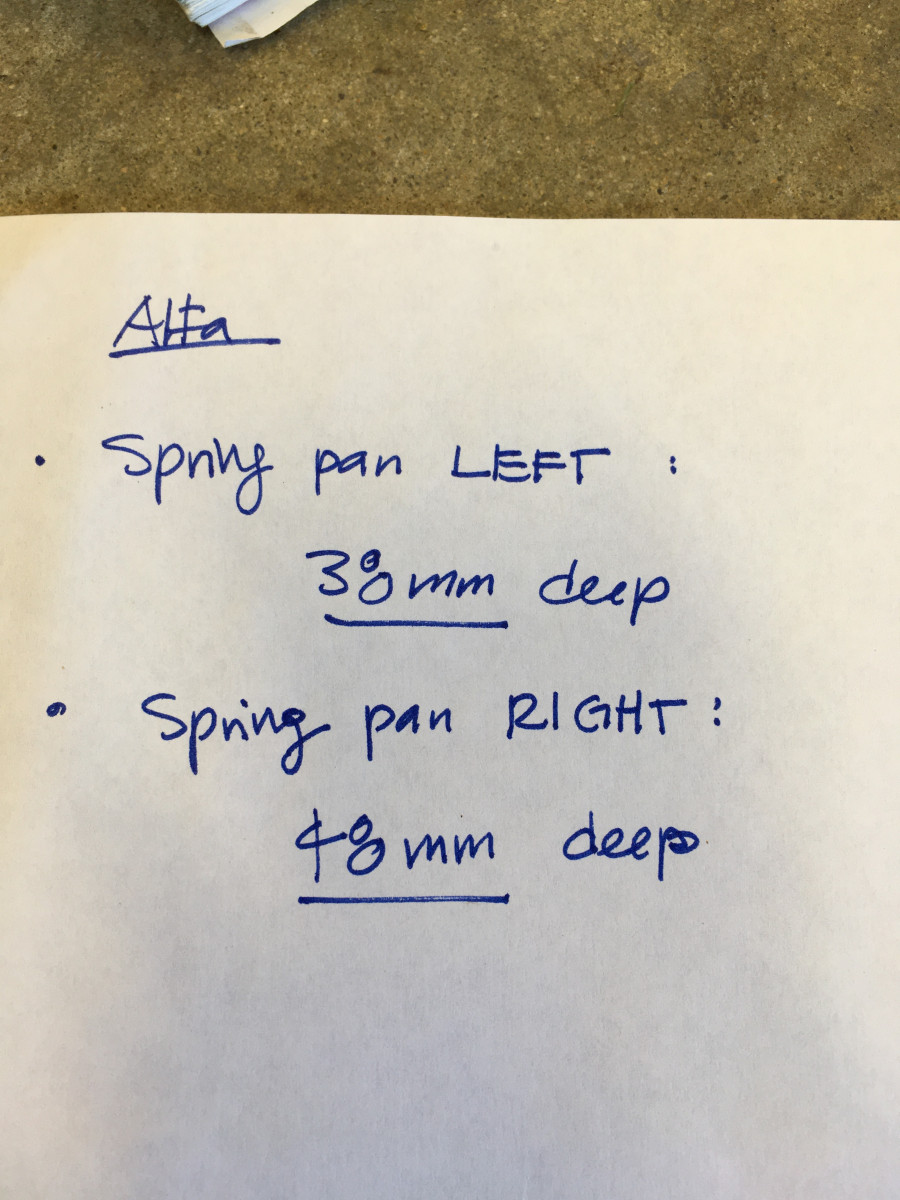 Alfa
• Spring pan LEFT :
38mm deep
• Spring pan RIGHT :
48mm deep